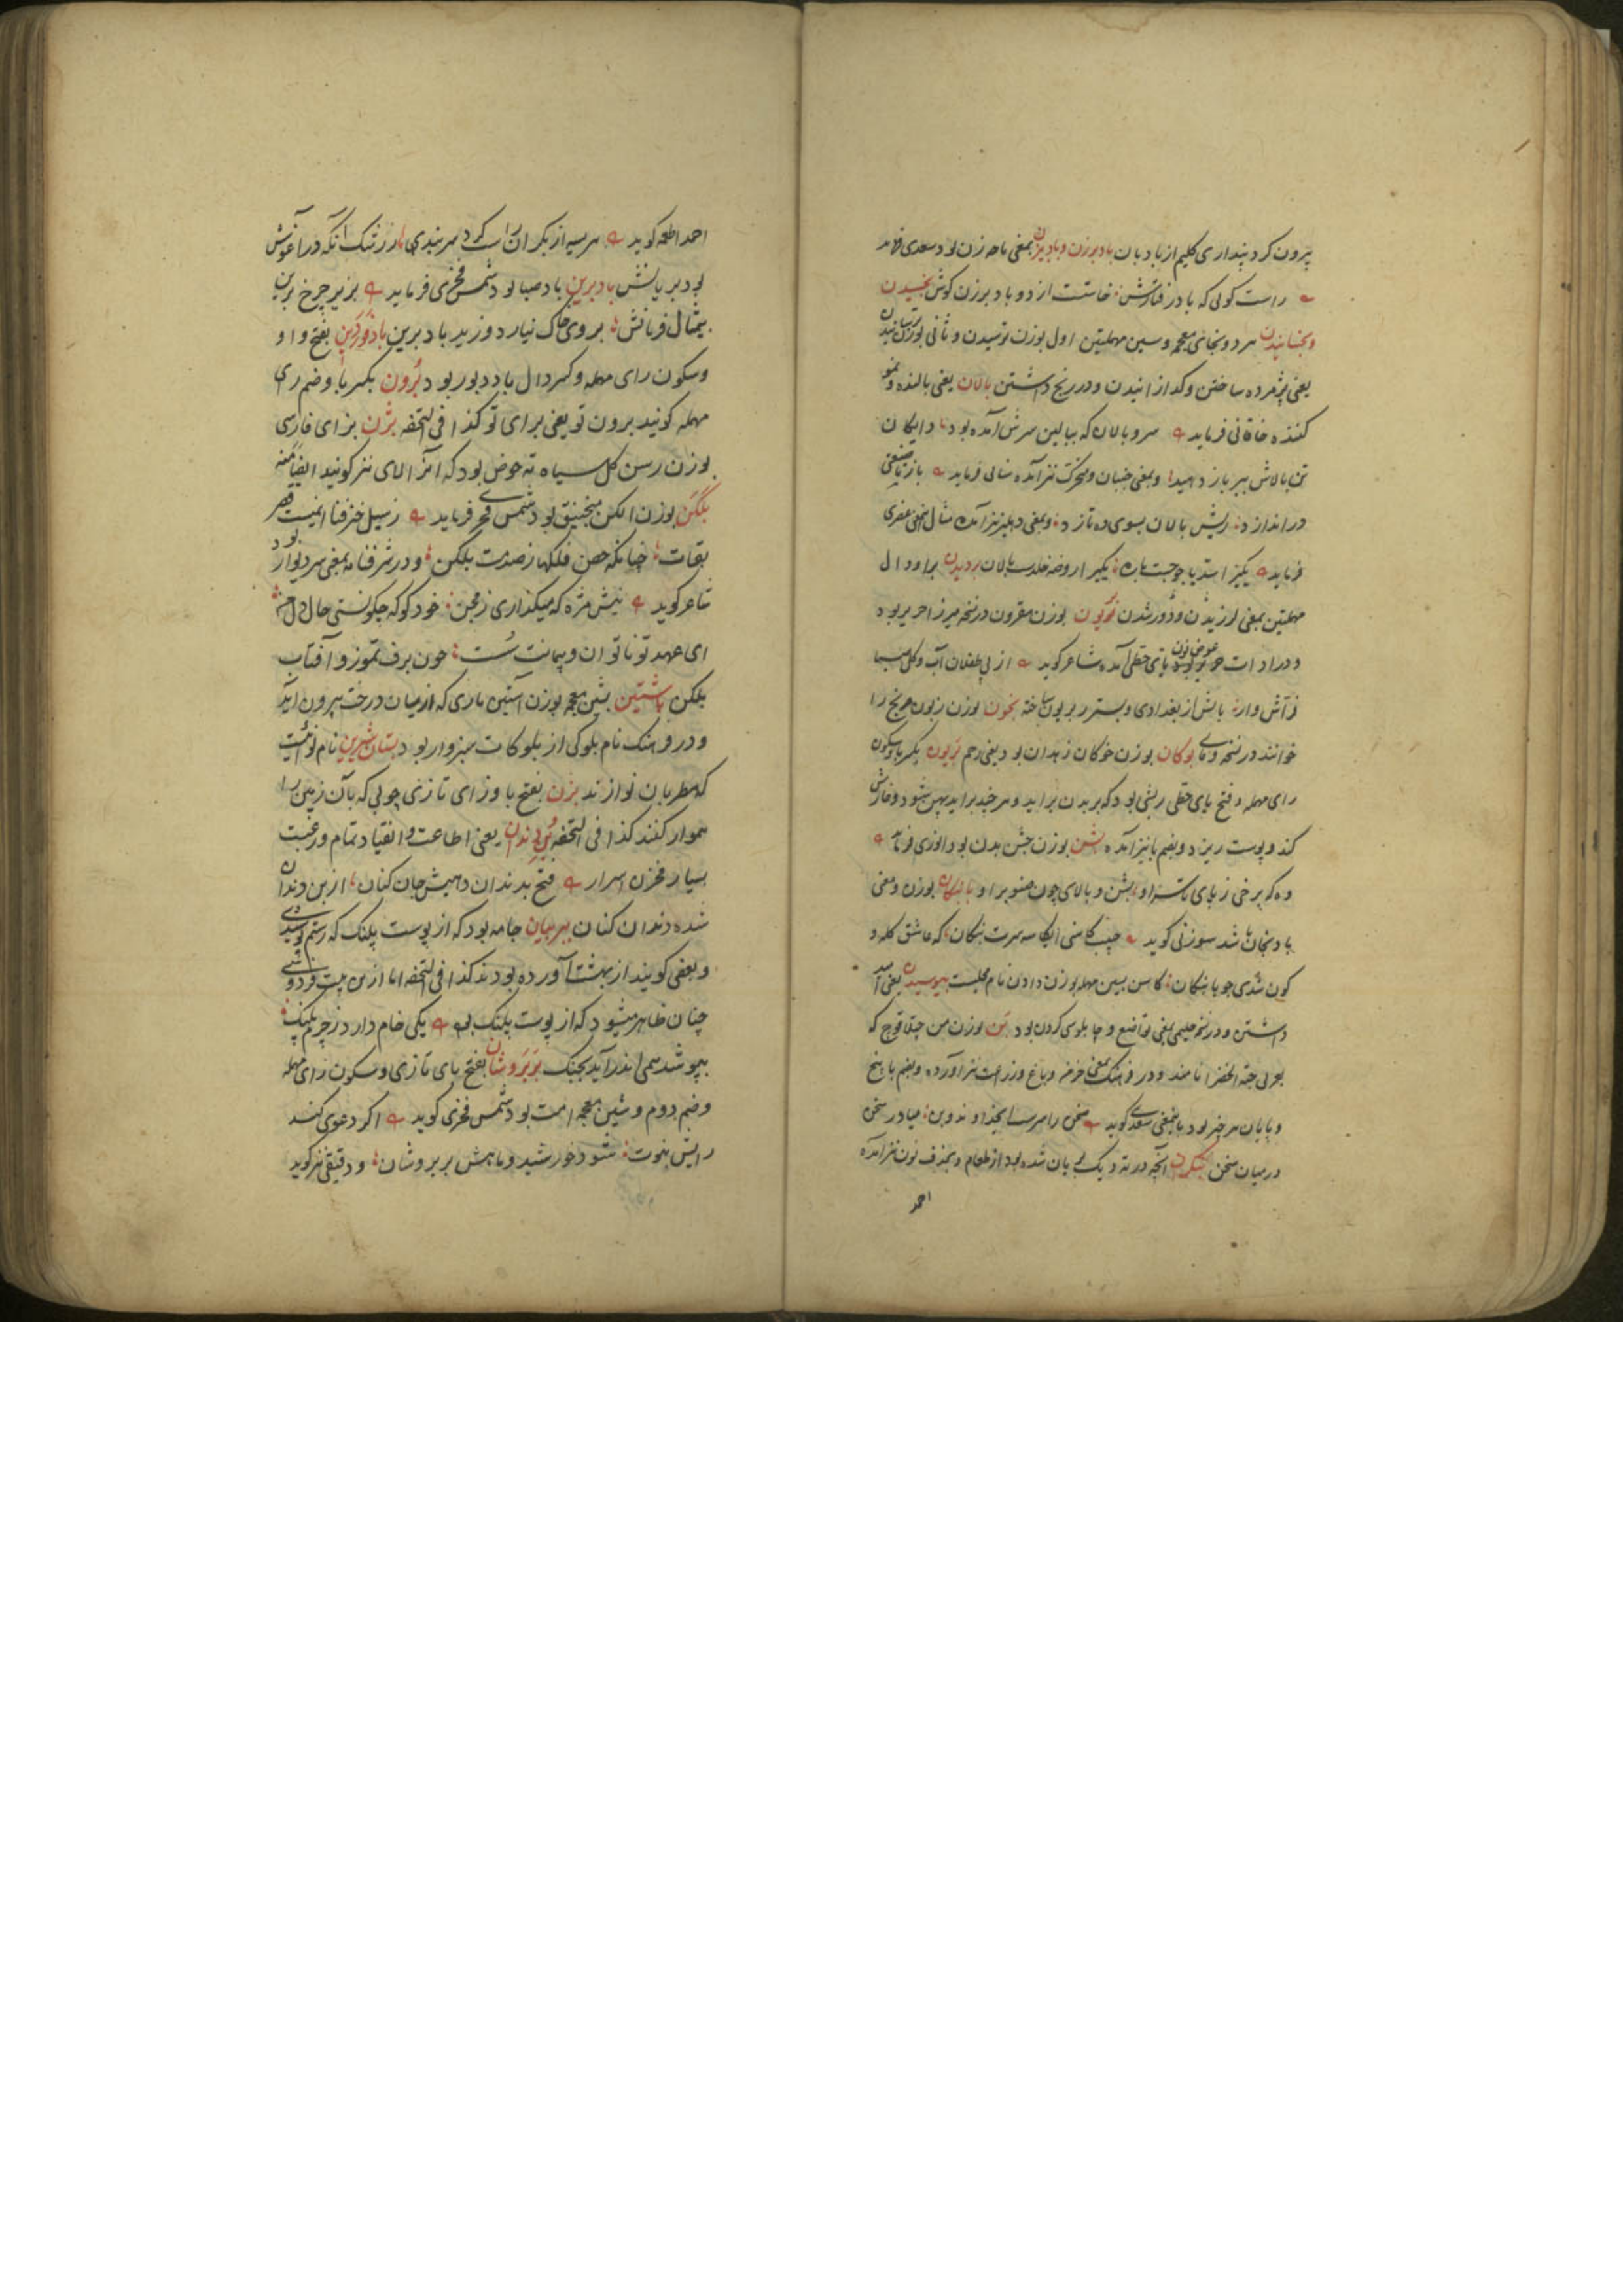 برون کرد پنداری کلیم از بادبان بادبزن و بادبیزن بمعنی باحه زن بود سعدی فرماید
راست کوئی که باد رفتارش خاست از دو بادبزن کوش بخسیدن
و بخسانیدن هر دو بخای معجمه و سین مهملتین اول بوزن ترسیدن و ثانی بوزن ترسانیدن
یعنی پژمرده ساختن و کدازانیدن و در رنج داشتن بالان یعنی بالنده و نمو
کننده خاقانی فرماید سرو بالان که ببالین سرش آمده بود دایکان
تن بالاش ببر باز دهید و بمعنی جنبان و متحرک نیز آمده سنائی فرماید باز
دراندازد ریش بالان بسوی ده تازد و بمعنی دهلیز نیز آمده مثال عنصری
فرماید یکی از روضه خلدست بالان بردیدن برا و دال
مهملتین بمعنی لرزیدن و دور شدن بوزن مقرون در نسخه میرزا حریر بود
و در ادات عوض نون یای حطی آمده شاعر کوید از بی آب و کل
فراش وار بالش از بغدادی و بستر ز بزیون ساخته بخون بوزن زبون مریخ را
خوانند در نسخه وفای بوکان بوزن خوکان زهدان بود یعنی رحم بریون بکسر با و سکون
رای مهمله و فتح یای حطی ریشی بود که بر بدن براید و هر چند براید پهن شود و خارش
کند و پوست ریزد و بضم با نیز آمده بشن بوزن جشن بدن بود انوری فرماید
وه که بر خی ز پای تا سر او بشن و بالای چون صنوبر او باتنکان بوزن و معنی
بادنجان باشد سوزنی کوید که عاشق کله و
کون شدی جویا بتنکان کاس بسین مهمله بوزن دادن نام محلیست بیوسیدن یعنی امید
داشتن و در نسخه حلیمی بمعنی تواضع و چابلوسی کردن بود بن بوزن من چتلاقوج که
بعربی حبة الخضرا نامند و در فرهنک بمعنی خرمن و باغ و زراعت نیز آورده و بضم با بیخ
و پایان هر چیز بود بدین معنی سعدی کوید سخن را سرست ای خداوند و بن میاور سخن
در میان سخن بنکران آنچه در ته دیک بریان شده بود از طعام و بحذف نون نیز آمده
احمد
احمد اطعمه کوید هریسه از بکران راست کرد سربندی نه رزتنک آنکه در آغوش
بود بریانش بادبرین باد صبا بود شمس فخری فرماید بزیر چرخ برین
بیمثال فرمانش بروی خاک نیارد وزید بادبرین بادفوردین بفتح واو
و سکون رای مهمله و کسر دال باد دبور بود برون بکسر با و ضم رای
مهمله کویند برون تو یعنی برای تو کذا فی التحفه بژن بزای فارسی
بوزن رسن کل سیاه ته حوض بود که آنرا لای نیز کویند ایضا منه
بلکن بوزن الکن منجنیق بود شمس فخری فرماید ز سیل خنرفنا ایمنست قصر
بقات چنانکه حصن فلکها ز صدمت بلکن و در شرفنامه بمعنی سر دیوار بود
شاعر کوید نیش مژه که میکذاری ز مجن خود کوکه چکونستی حال دل من
ای عهد تو ناتوان و پیمانت سست چون برف تموز و آفتاب
بلکن باشتین بشین معجمه بوزن آستین باری که از میان درخت بیرون آید
و در فرهنک نام بلوکی از بلوکات سبزوار بود بستان شیرین نام نوائیست
که مطربان نوازند بزن بفتح با و زای تازی چوبی که بآن زمین را
هموار کنند کذا فی التحفه بن دندان یعنی اطاعت و انقیاد تمام و رغبت
بسیار مخزن اسرار فتح بدندان دهیش جان کنان از بن دندان
شده دندان کنان ببربیان جامه بود که از پوست پلنک که رستم پوشیدی
و بعضی کویند از بهشت آورده بودند کذا فی التحفه اما ازین بیت فردوسی
چنان ظاهر میشود که از پوست پلنک بوده یکی خام دارد ز چرم پلنک
بپوشد همی اندرآید بجنک بربروشان بفتح بای تازی و سکون رای مهمله
و ضم دوم و شین معجمه امت بود شمس فخری کوید اکر دعوی کند
رایش نبوت شود خورشید و ماهش بربروشان و دقیقی نیز کوید